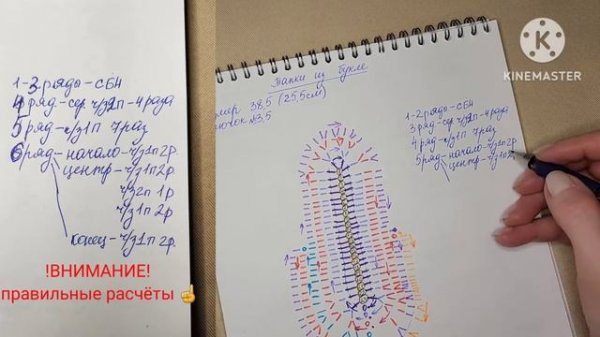 1-3 ряды-СБН
4 ряд-ср ч/з2п-4 раза
5 ряд-ч/з1п 7 раз
6 ряд-начало-ч/з1п 2р
центр-ч/з1п2р
ч/з2п 1р
ч/з1п 2р
конец-ч/з1п 2р.
!ВНИМАНИЕ!
правильные расчёты ☝
KINEMASTER
Тапки из букле
мер 38,5 (25,5см)
рючок №3,5
1-2 ряды-СБН
3 ряд-ср ч/з2п-4 раза
4 ряд-ч/з1п 7 раз
5 ряд-начало-ч/з1п 2р
центр-ч/з1п 2